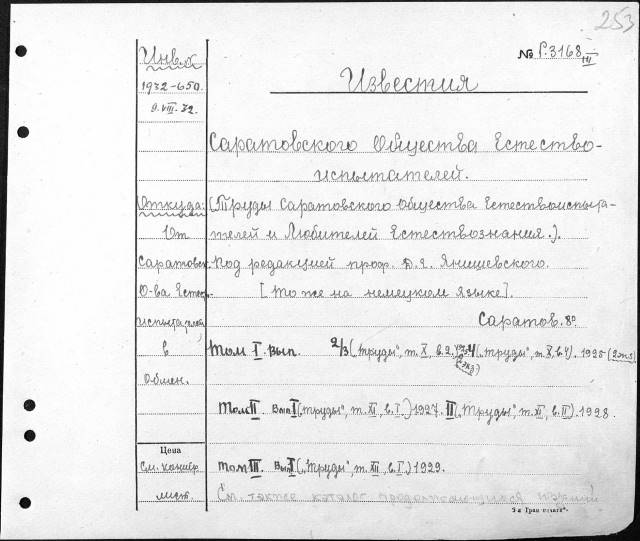 253
Инв. к
1932-650.
9.VIII.32.
№ P.3168 III
Известия
Саратовского Общества Естество-
испытателей.
Откуда:
От
Саратовск.
О-ва Естес-
испытателей
в
обмен.
(Труды Саратовского Общества Естествоиспыта-
телей и Любителей Естествознания.).
Под редакцией проф. Д.Е. Янишевского.
[То же на немецком языке].
Саратов. 8°
Том I. Вып. 2/3 („Труды", т. X, в.2, 4 („Труды", т. X, в.4). 1925 (2 экз)
Том II. Вып. I („Труды", т. XI, в. I.) 1927. II („Труды", т. XI, в. II). 1928.
Том III. Вып. I („Труды", т. XII, в. I.) 1929.
См. также каталог продолжающихся изданий
Цена
См. канцеляр.
лист.
3-я Грав печатн".